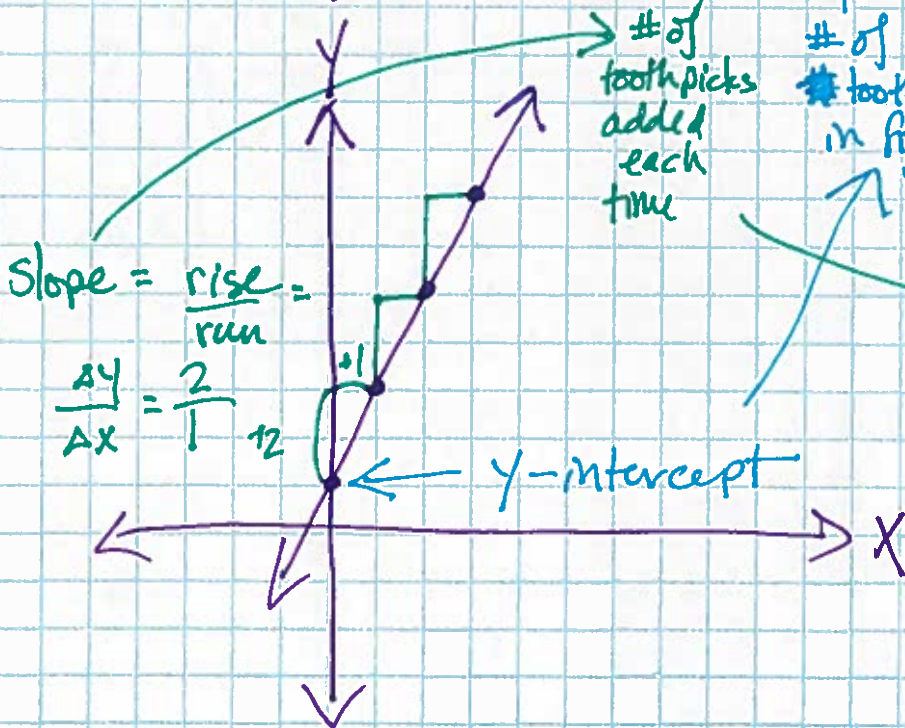 Y
# of
toothpicks
added
each
time
# of
in
Slope = rise =
run
ΔY = 2
ΔX 1
+1
+2
Y-intercept
X